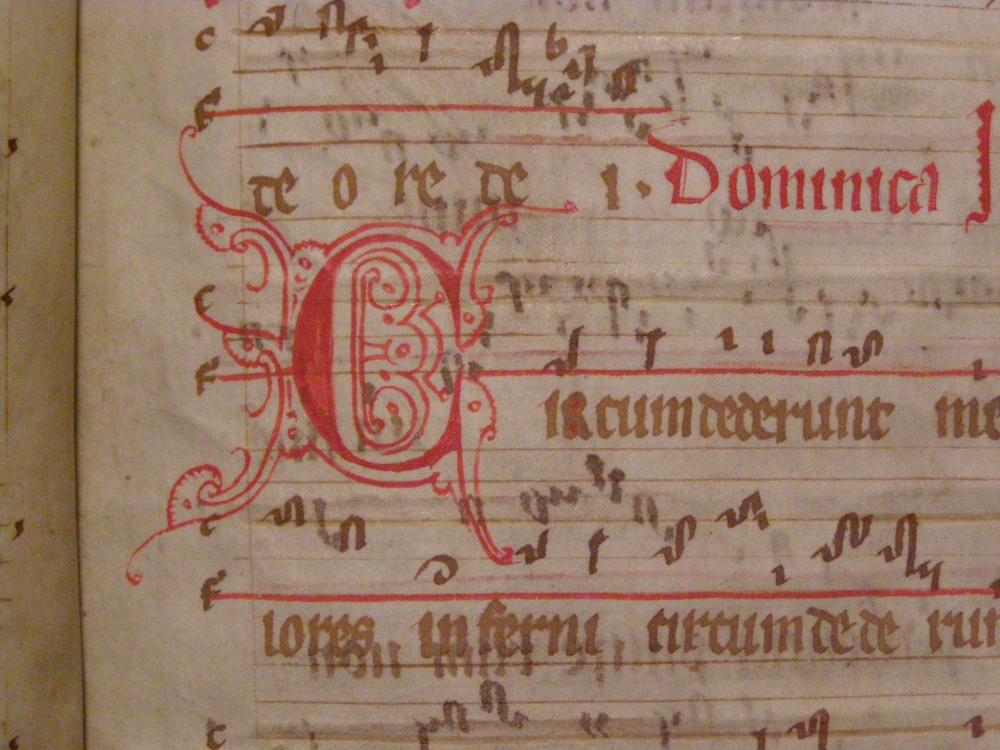 te o re te 1. Dominica
CIRcumdederunt me
iores inferni circumdede run